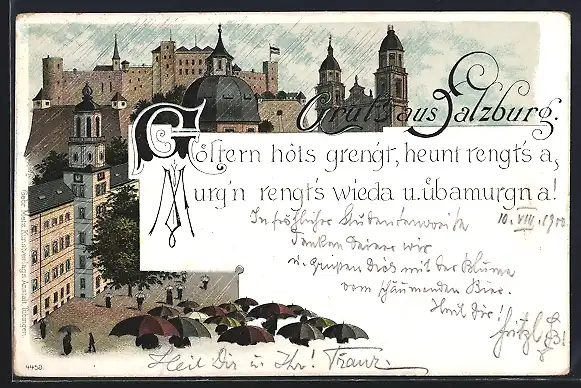 Gruß aus Salzburg.
Göstern hòts grengt, heunt rengt's a,
Murg'n rengt's wieda u. übamurgn a!
10. VIII. 1900
In fröhlicher Studentenweise
denken Deiner wir
u. grüßen Dich mit der Blume
vom schäumenden Bier.
Heil Dir!
Fritzl
Heil Dir u. Ihr! Franz.
Gebr. Metz, Kunstverlags-Anstalt, Tübingen.
4458.